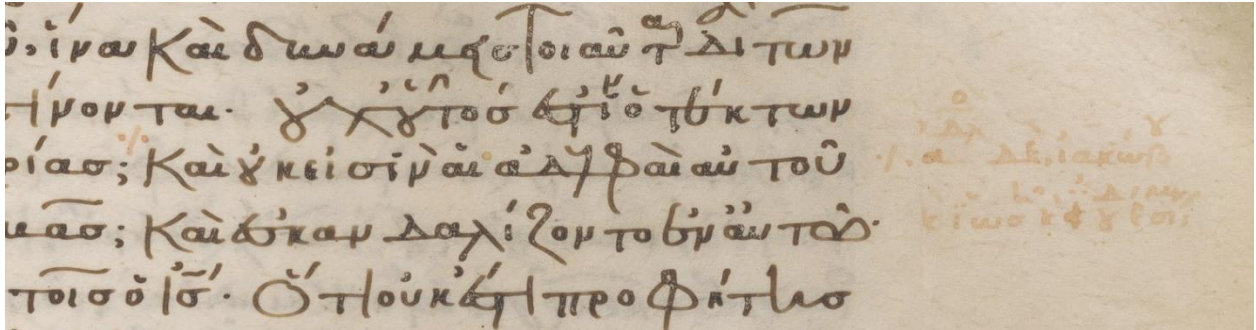 ἵνα καὶ δυνάμεις τοιαῦται διὰ τῶν
γίνονται· οὐχ οὗτός ἐστιν ὁ τέκτων
ρίας; καὶ οὐκ εἰσὶν αἱ ἀδελφαὶ αὐτοῦ
μᾶς; καὶ ἐσκανδαλίζοντο ἐν αὐτῷ·
τοῖς ὁ ις· ὅτι οὐκ ἔστι προφήτης
ἰακώβ